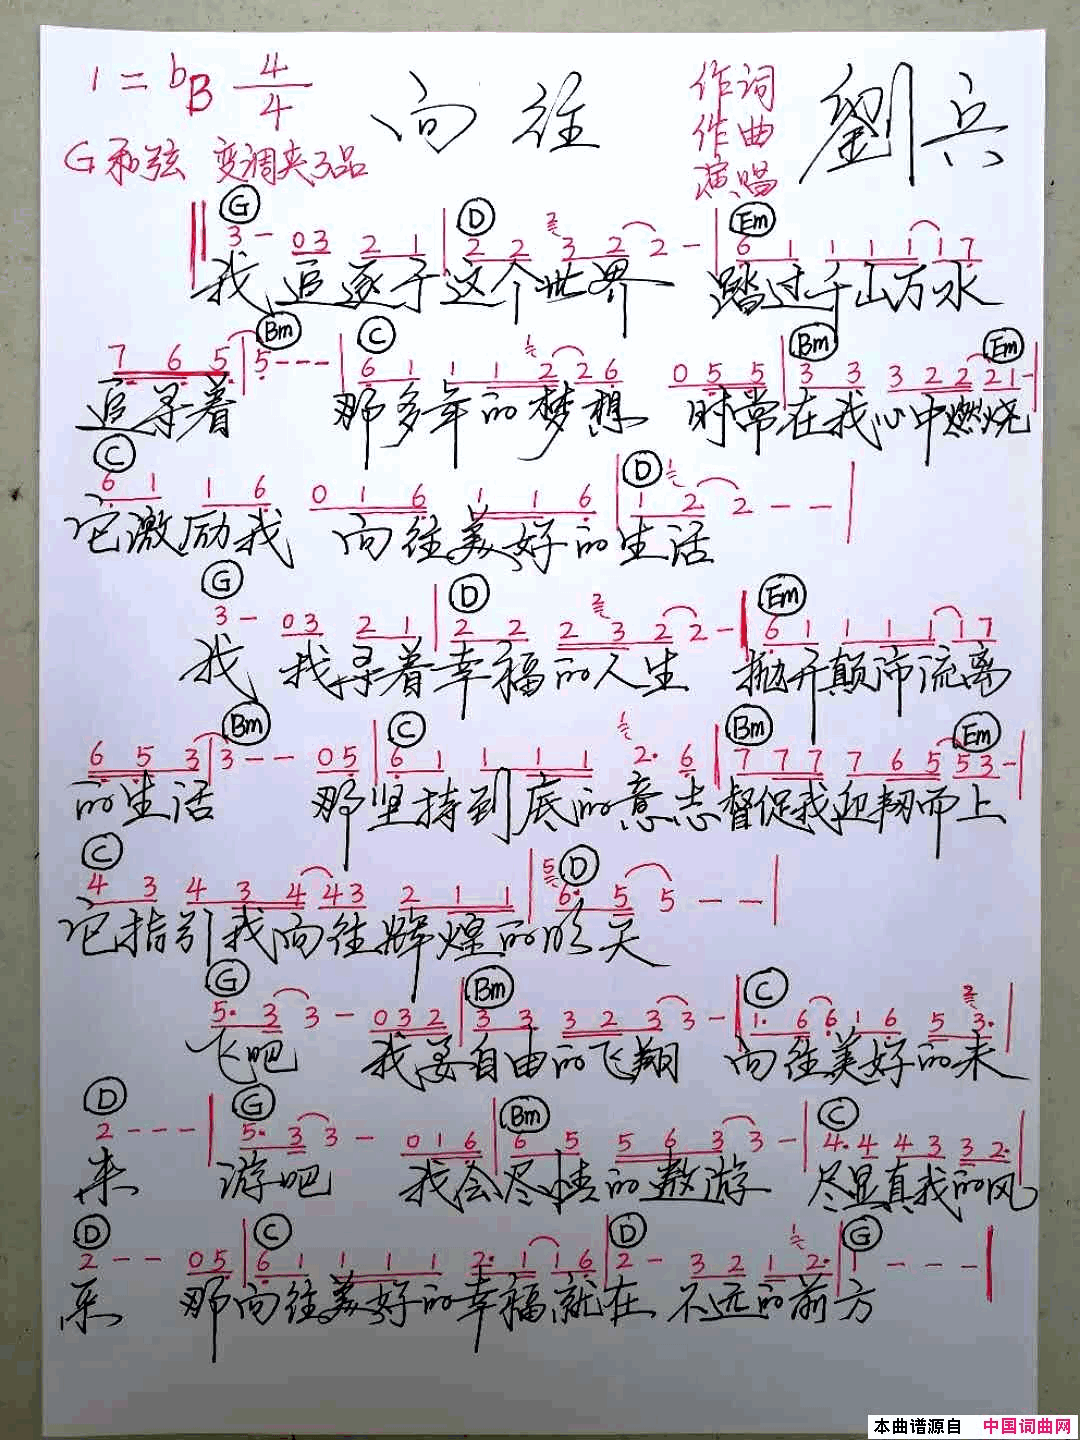 1=bB 4/4 向往 作词 作曲 演唱 劉兵
G和弦 变调夹3品
G D Em
3 - 03 2 1 | 2 2 3 2 2 - | 6 1 1 1 1 1 7
我 追逐于这个世界 踏过千山万水
Bm C Bm Em
7 6 5 | 5 - - - | 6 1 1 1 2 2 6 0 5 5 | 3 3 3 2 2 2 1 - |
追寻着 那多年的梦想 时常在我心中燃烧
C D
6 1 1 6 0 1 6 1 1 6 | 1 2 2 - - |
它激励我 向往美好的生活
G D Em
3 - 03 2 1 | 2 2 2 3 2 2 - | 6 1 1 1 1 1 7
我 找寻着幸福的人生 抛开颠沛流离
Bm C Bm Em
6 5 3 | 3 - - - 0 5 | 6 1 1 1 1 2· 6 | 7 7 7 7 6 5 5 3 - |
的生活 那坚持到底的意志督促我迎韧而上
C D
4 3 4 3 4 4 3 2 1 1 | 6· 5 5 - - |
它指引我向往辉煌的明天
G Bm C
5· 3 3 - 0 3 2 | 3 3 3 2 3 3 - | 1· 6 6 1 6 5 3· |
飞吧 我要自由的飞翔 向往美好的未
D G Bm C
2 - - - | 5· 3 3 - 0 1 6 | 6 5 5 6 3 3 - | 4· 4 4 3 3 2· |
来 游吧 我会尽情的遨游 尽显真我的风
D C D G
2 - - 0 5 | 6 1 1 1 1 2· 1 1 6 | 2 - 3 2 1 2· | 1 - - - |
采 那向往美好的幸福就在 不远的前方
本曲谱源自 中国词曲网